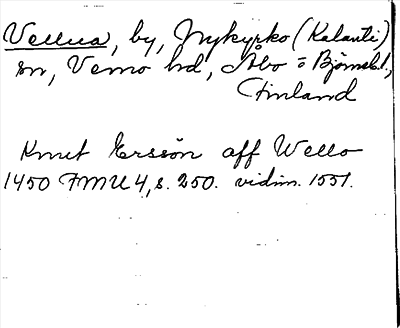 Vellua, by, Nykyrko (Kalanti)
sn, Vemo hd, Åbo o Björnebl.,
Finland
Knut Ersson aff Wello
1450 FMU 4, s. 250. vidim. 1551.